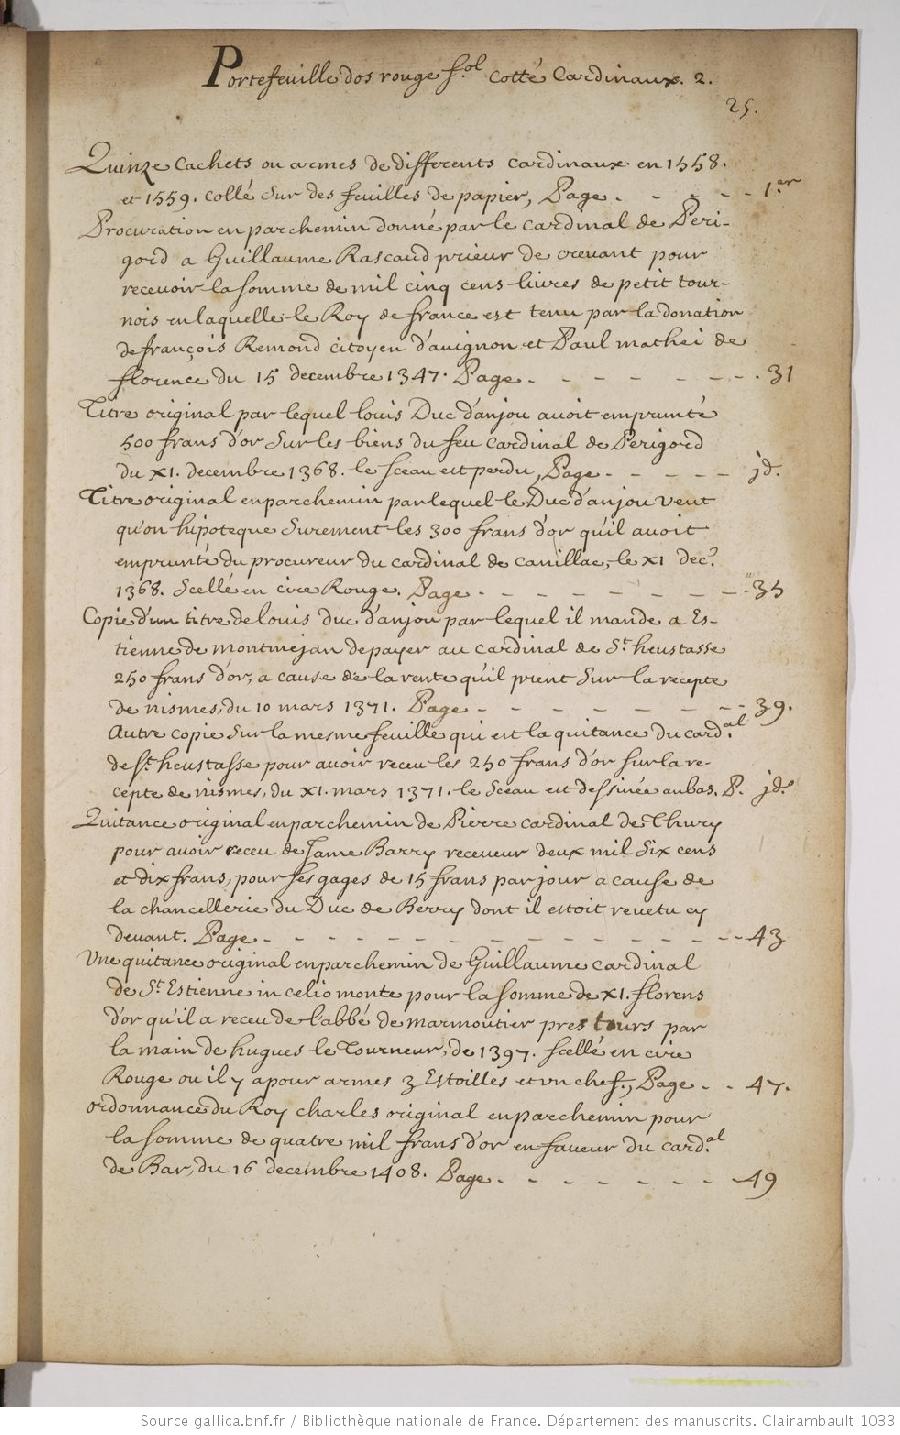 Portefeuille dos rouge fol cotté Cardinaux. 2.
25.
Quinze Cachets ou armes de differents cardinaux en 1558.
et 1559. collé sur des feuilles de papier, Page. - - - - - 1er
Procuration en parchemin donné par le cardinal de Peri-
gord a Guillaume Rascaud prieur de crevant pour
recevoir la somme de mil cinq cens livres de petit tour-
nois en laquelle le Roy de france est tenu par la donation
de françois Remond citoyen d'avignon et Paul mathei de
florence du 15 decembre 1347. Page. - - - - - - 31
Titre original par lequel louis Duc d'anjou avoit emprunté
500 frans d'or sur les biens du feu cardinal de Perigord
du XI. decembre 1368. le sceau est perdu, Page - - - - - jd.
Titre original en parchemin par lequel le Duc d'anjou veut
qu'on hipoteque surement les 300 frans d'or qu'il avoit
emprunté du procureur du cardinal de canillac, le XI dec.
1368. scellé en cire Rouge. Page. - - - - - - - 35
Copie d'un titre de louis duc d'anjou par lequel il mande a Es-
tienne de montmejan de payer au cardinal de St. heustasse
250 frans d'or, a cause de la rente qu'il prent sur la recepte
de nismes, du 10 mars 1371. Page - - - - - - - 39.
Autre copie sur la mesme feuille qui est la quitance du card.al
de st. heustasse pour avoir receu les 250 frans d'or sur la re-
cepte de nismes, du XI. mars 1371. le sceau est dessinée au bas. P. jd.
Quitance original en parchemin de Pierre cardinal de Thury
pour avoir receu de Jame Barry receveur deux mil six cens
et dix frans, pour ses gages de 15 frans par jour a cause de
la chancellerie du Duc de Berry dont il estoit revetu cy
devant. Page. - - - - - - - - - - - - 43
Une quitance original en parchemin de Guillaume cardinal
de St. Estienne in celio monte pour la somme de XI. florens
d'or qu'il a receu de l'abbé de marmoutier pres tours par
la main de hugues le Tourneur, de 1397. scellé en cire
Rouge ou il y a pour armes 3 Estoilles et vn chef., Page - - 47.
ordonnance du Roy charles original en parchemin pour
la somme de quatre mil frans d'or en faveur du card.al
de Bar, du 16 decembre 1408. Page - - - - - - - 49
Source gallica.bnf.fr / Bibliothèque nationale de France. Département des manuscrits. Clairambault 1033